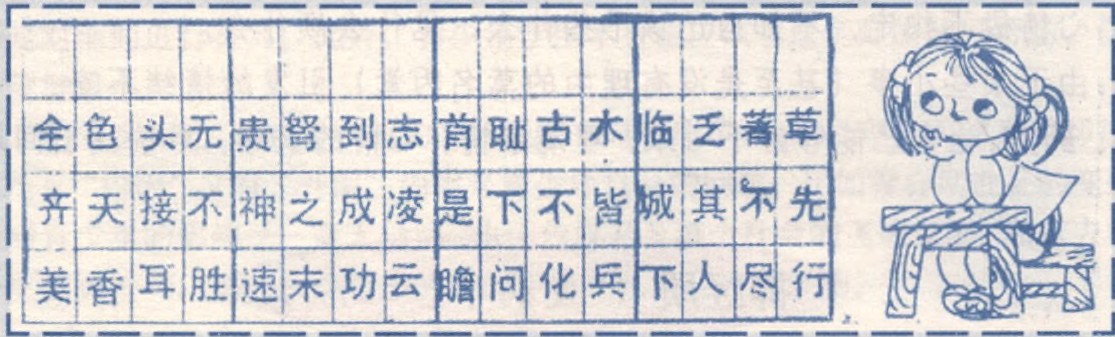 草先行
著不尽
乏其人
临城下
木皆兵
古不化
耻下问
首是瞻
志凌云
到成功
弩之末
贵神速
无不胜
头接耳
色天香
全齐美